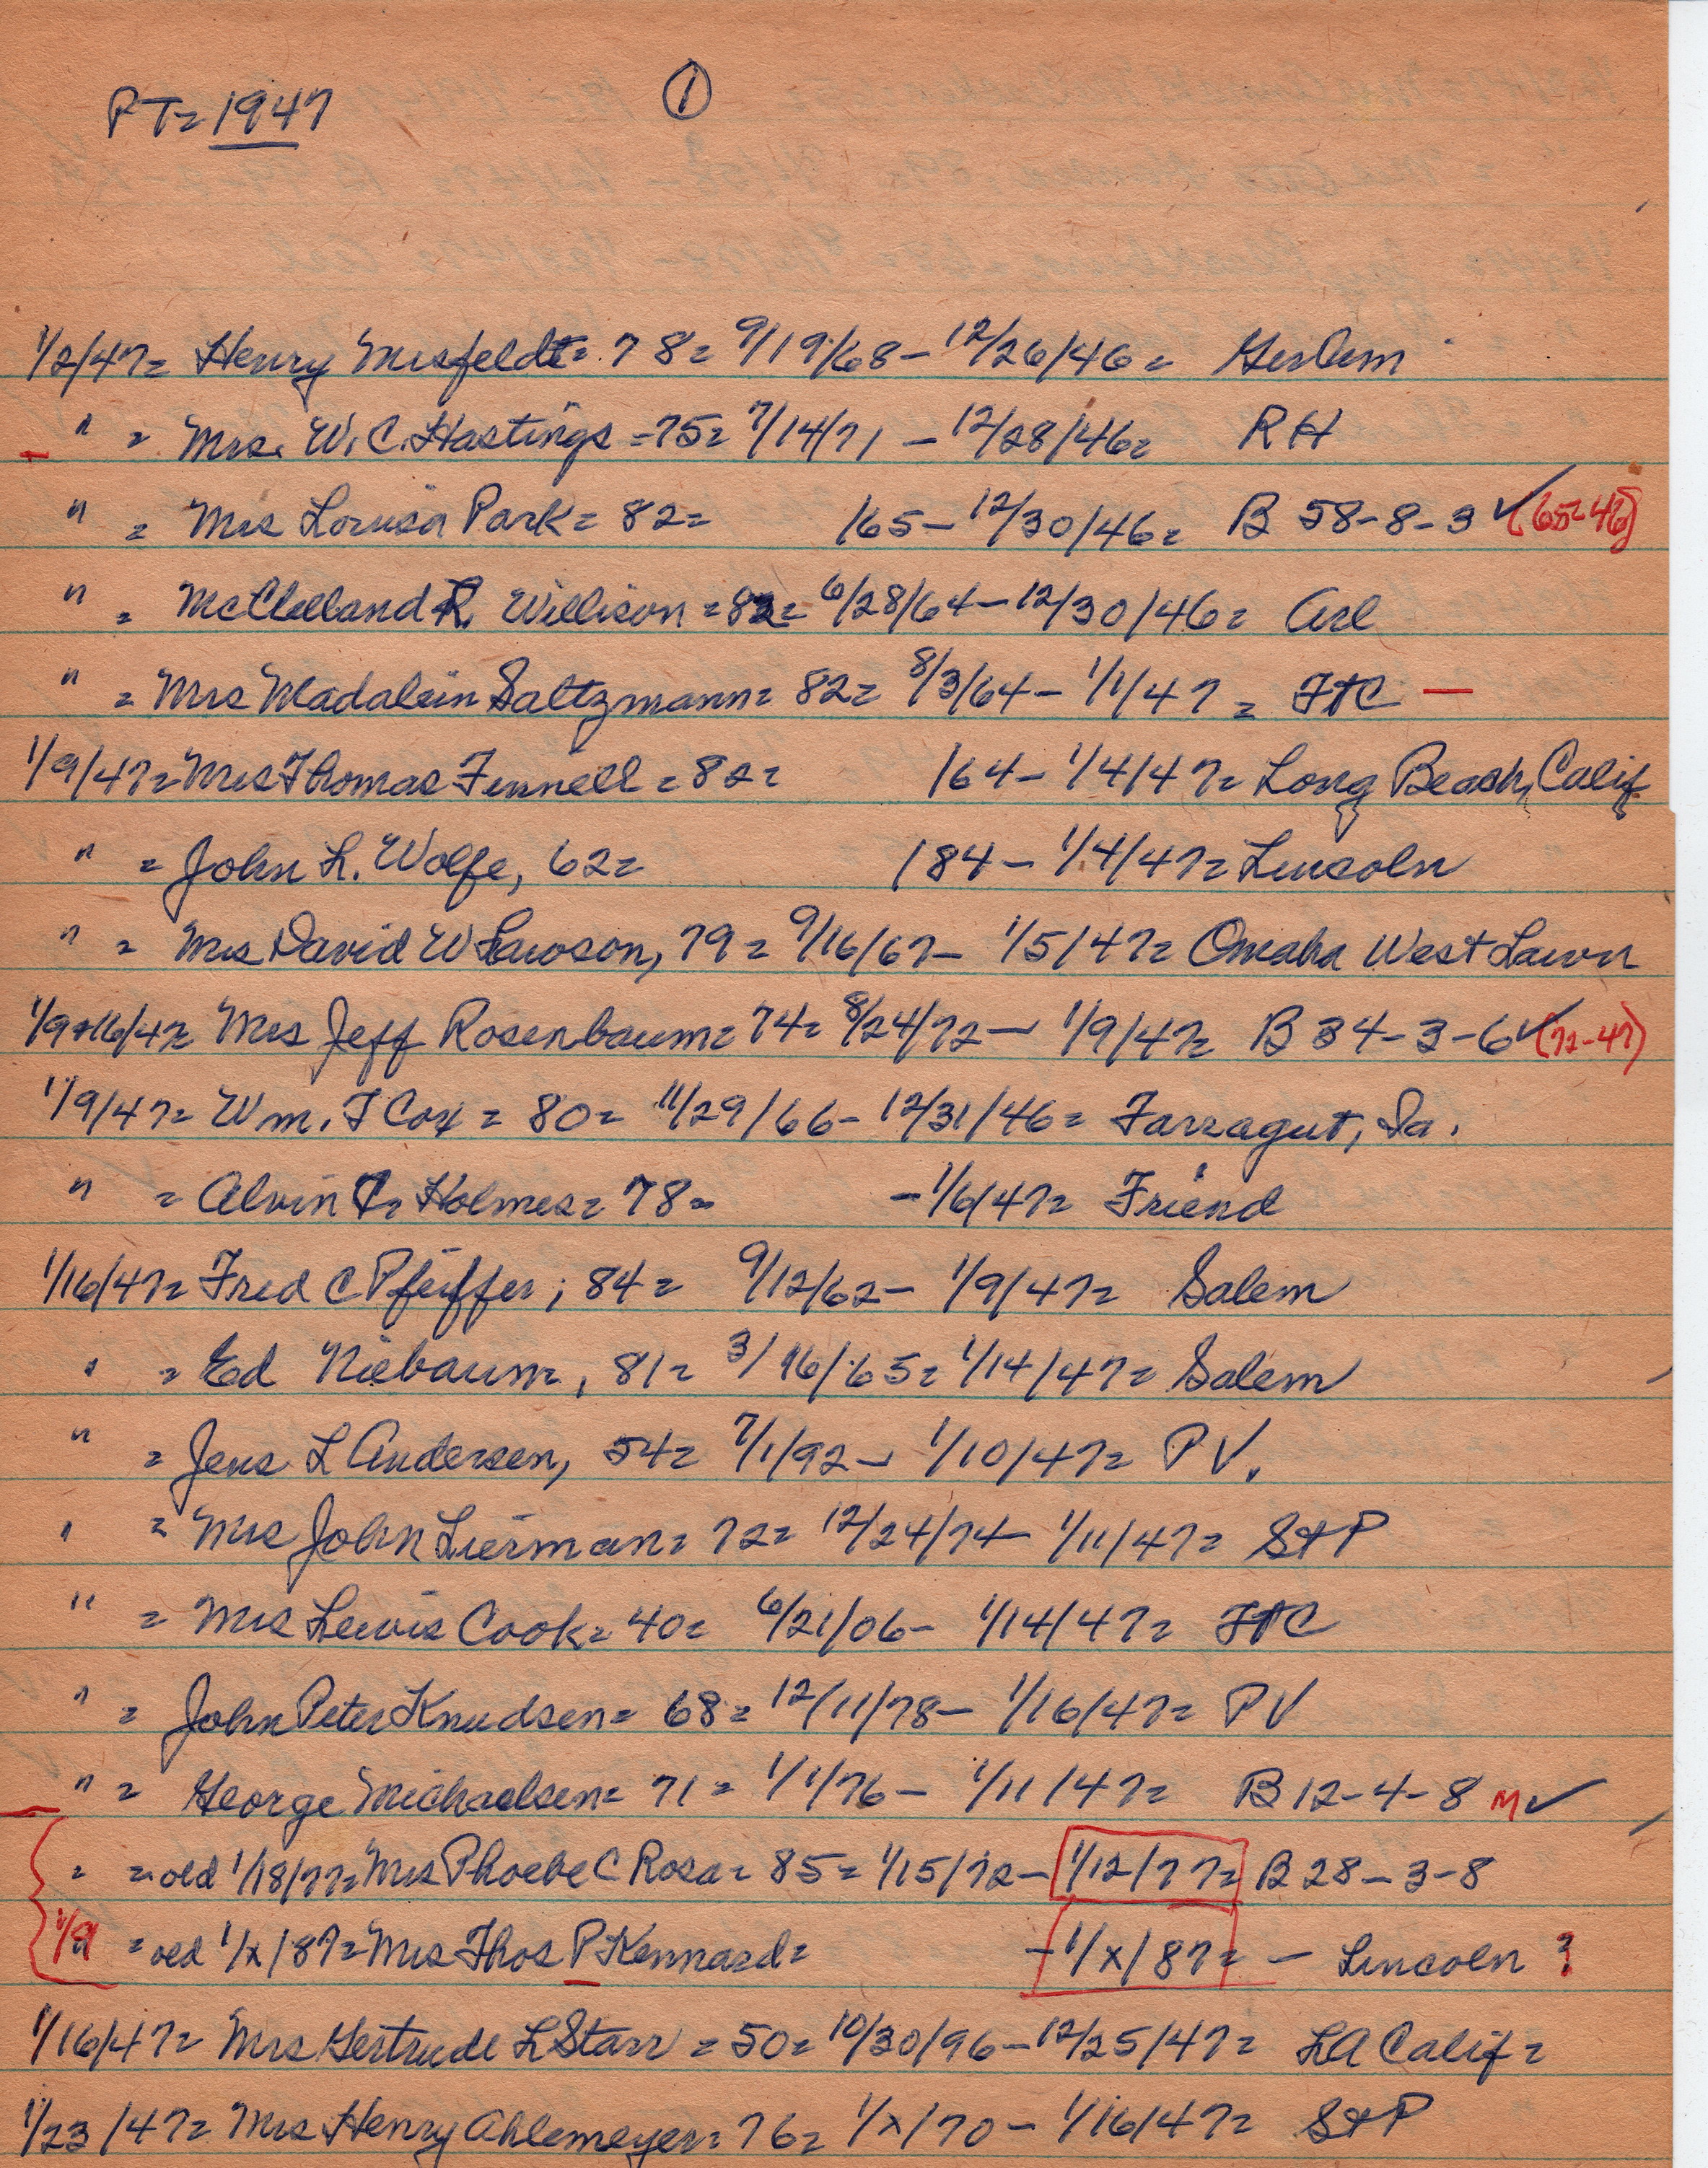 PT= 1947 ①
1/2/47= Henry Misfeldt= 78= 9/19/68 - 12/26/46 = GerCem
" = Mrs. W.C. Hastings -75= 7/14/71 - 12/28/46= RH
" = Mrs Louisa Park= 82= /65- 12/30/46= B 58-8-3 ✓ (65-46)
" = McClelland R. Willison = 82= 6/28/64-12/30/46= Arl
" = Mrs Madalein Saltzmann= 82= 8/3/64- 1/1/47 = FTC —
1/9/47= Mrs Thomas Fennell = 82= /64- 1/4/47= Long Beach, Calif.
" = John L. Wolfe, 62= /84- 1/4/47= Lincoln
" = Mrs David W Lawson, 79= 9/16/67- 1/5/47= Omaha West Lawn
1/9+16/47= Mrs Jeff Rosenbaum= 74= 8/24/72- 1/9/47= B 34-3-6 ✓ (72-47)
1/9/47= Wm. F Cox = 80= 11/29/66- 12/31/46= Farragut, Ia.
" = Alvin C= Holmes= 78= -1/6/47= Friend
1/16/47= Fred C Pfeiffer; 84= 9/12/62- 1/9/47= Salem
" = Ed Niebaum=, 81= 3/16/65= 1/14/47= Salem
" = Jens L Andersen, 54= 7/1/92- 1/10/47= PV.
" = Mrs John Lierman= 72= 12/24/74- 1/11/47= S+P
" = Mrs Lewis Cook= 40= 6/21/06- 1/14/47= FTC
" = John Peter Knudsen= 68= 12/11/78- 1/16/47= PV
" = George Michaelsen= 71= 1/1/76- 1/11/47= B 12-4-8 M ✓
" = old 1/18/77= Mrs Phoebe C Rosa= 85= 1/15/72- 1/12/77= B 28-3-8
1/9 " = old 1/x/87= Mrs Thos P Kennard= -1/x/87= - Lincoln ?
1/16/47= Mrs Gertrude L Starr = 50= 10/30/96-12/25/47= LA Calif=
1/23/47= Mrs Henry Ahlemeyer= 76= 1/x/70- 1/16/47= S+P